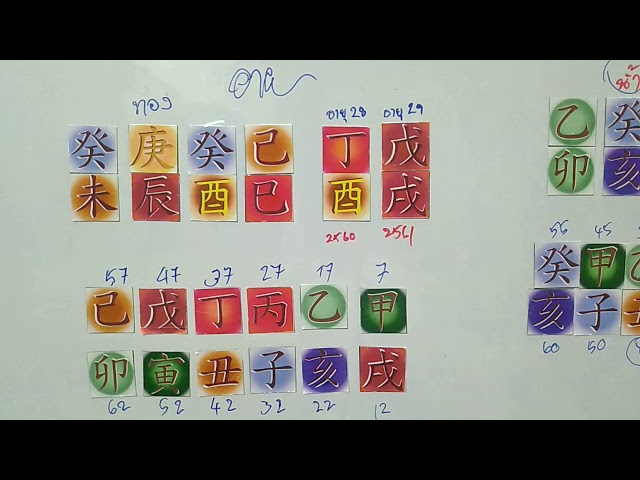 ทอง
อายุ 28 อายุ 29
癸 庚 癸 己 丁 戊
未 辰 酉 巳 酉 戌
2560 2561
57 47 37 27 17 7
己 戊 丁 丙 乙 甲
卯 寅 丑 子 亥 戌
62 52 42 32 22 12
乙 癸
卯 亥
55 45
癸 甲
亥 子
60 50